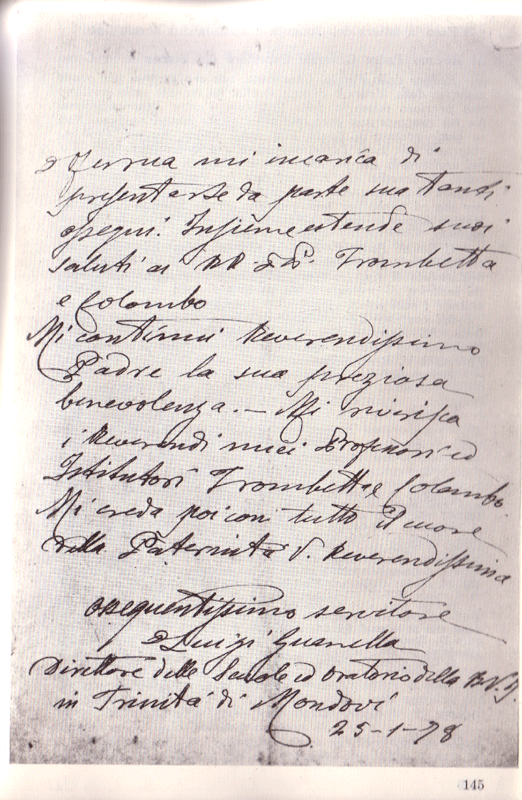 D Ferrua mi incarica di
presentarLe da parte sua tanti
ossequi. Insieme estende suoi
saluti ai RR. Trombetta
e Colombo
Mi continui Reverendissimo
Padre la sua preziosa
benevolenza. – Mi riverisca
i Reverendi miei Professori ed
Istitutori Trombetta e Colombo
Mi creda poi con tutto il cuore
della Paternità V. Reverendissima
ossequentissimo servitore
D Luigi Guanella
Direttore delle Scuole ed Oratorio della B.V.
in Trinità di Mondovì
25-1-78
145